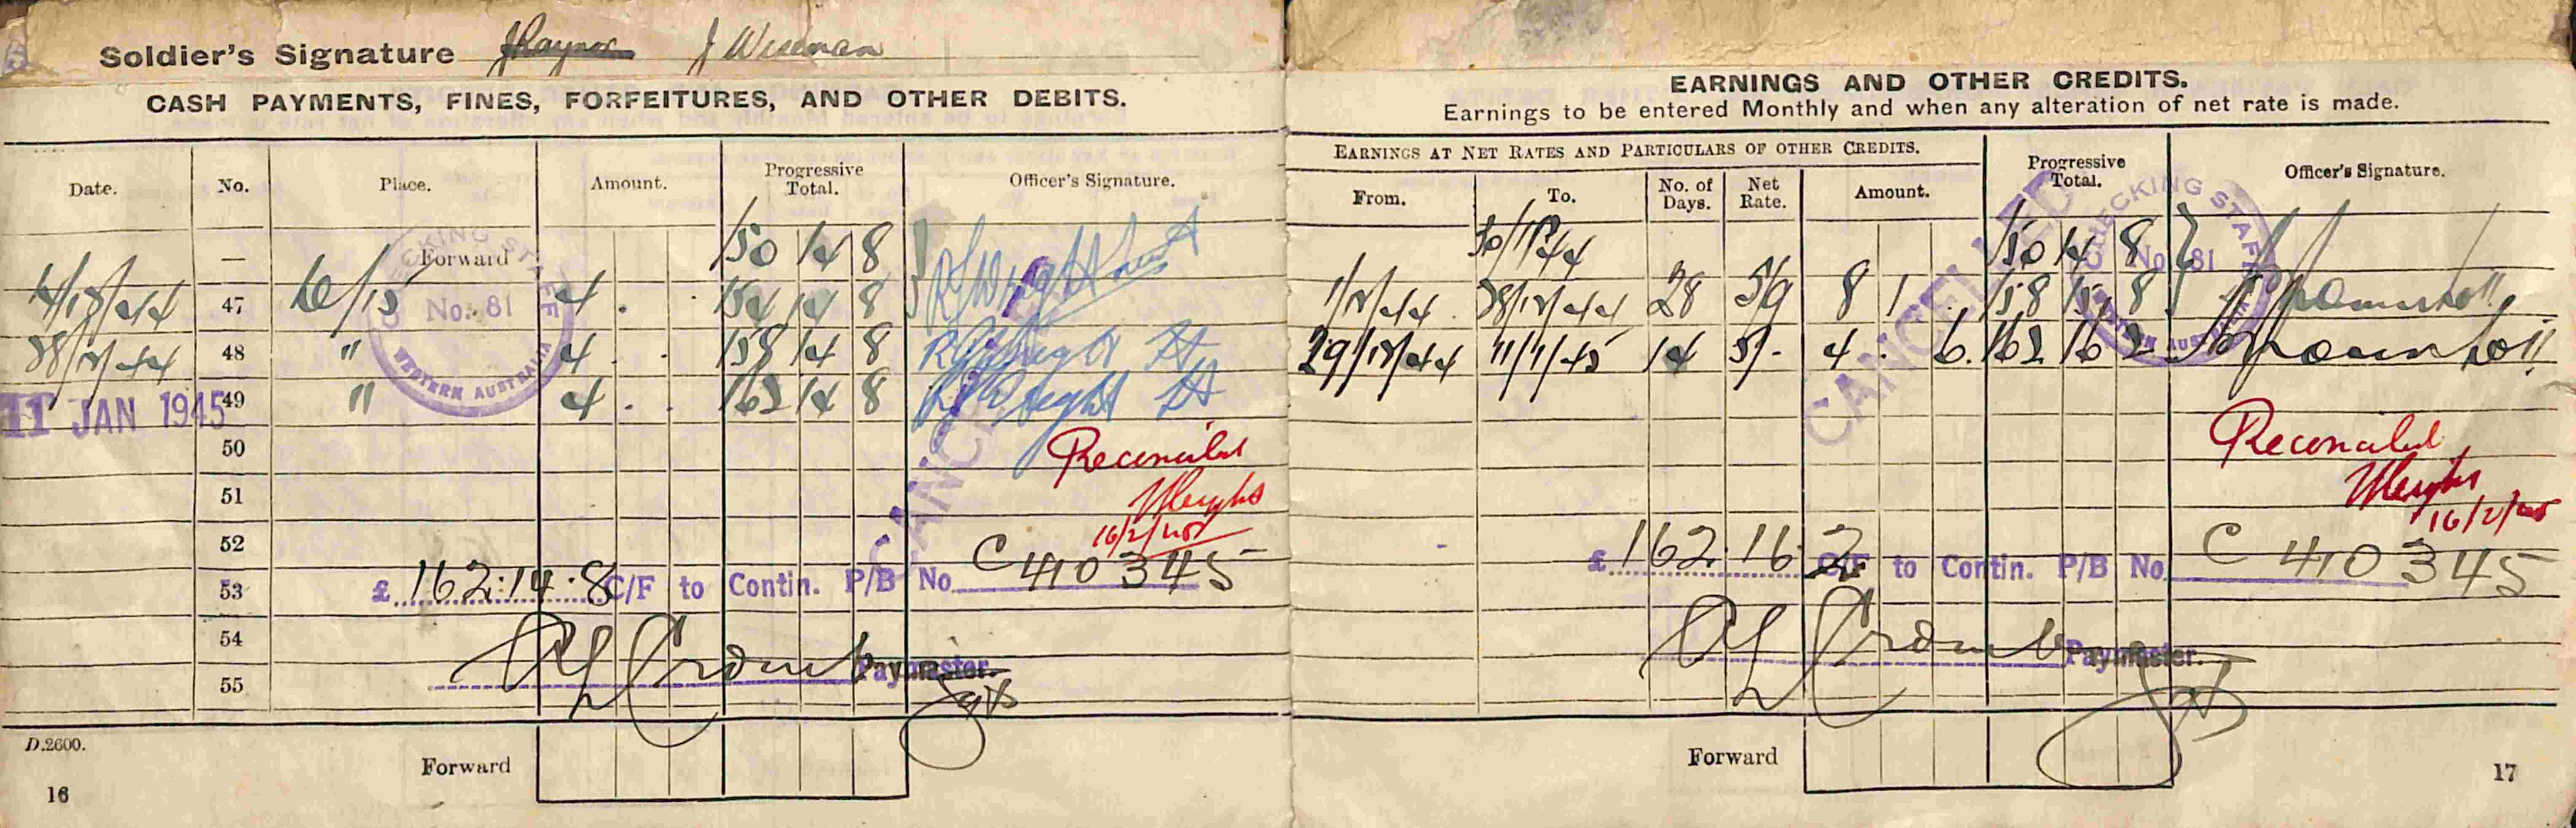 Soldier's Signature J Raynor J Wiseman
CASH PAYMENTS, FINES, FORFEITURES, AND OTHER DEBITS.
Date. No. Place. Amount. Progressive Total. Officer's Signature.
— Forward 150 14 8
14/12/44 47 6/15 4 . . 154 14 8
28/12/44 48 " 4 . . 158 14 8
11 JAN 1945 49 " 4 . . 162 14 8
CHECKING STAFF No. 81 WESTERN AUSTRALIA
CANCELLED
50
Reconciled
51
16/2/45
52
53 £ 162:14:8 C/F to Contin. P/B No. C 410345
54
Paymaster.
55
D.2600.
Forward
16
EARNINGS AND OTHER CREDITS.
Earnings to be entered Monthly and when any alteration of net rate is made.
EARNINGS AT NET RATES AND PARTICULARS OF OTHER CREDITS.
From. To. No. of Days. Net Rate. Amount. Progressive Total. Officer's Signature.
30/11/44 150 14 8
1/12/44 28/12/44 28 5/9 8 1 . 158 15 8
29/12/44 11/1/45 14 5/- 4 . 6. 162 16 2
CHECKING STAFF No. 81 WESTERN AUSTRALIA
CANCELLED
Reconciled
16/2/45
£ 162:16:2 C/F to Contin. P/B No. C 410345
Paymaster.
Forward
17